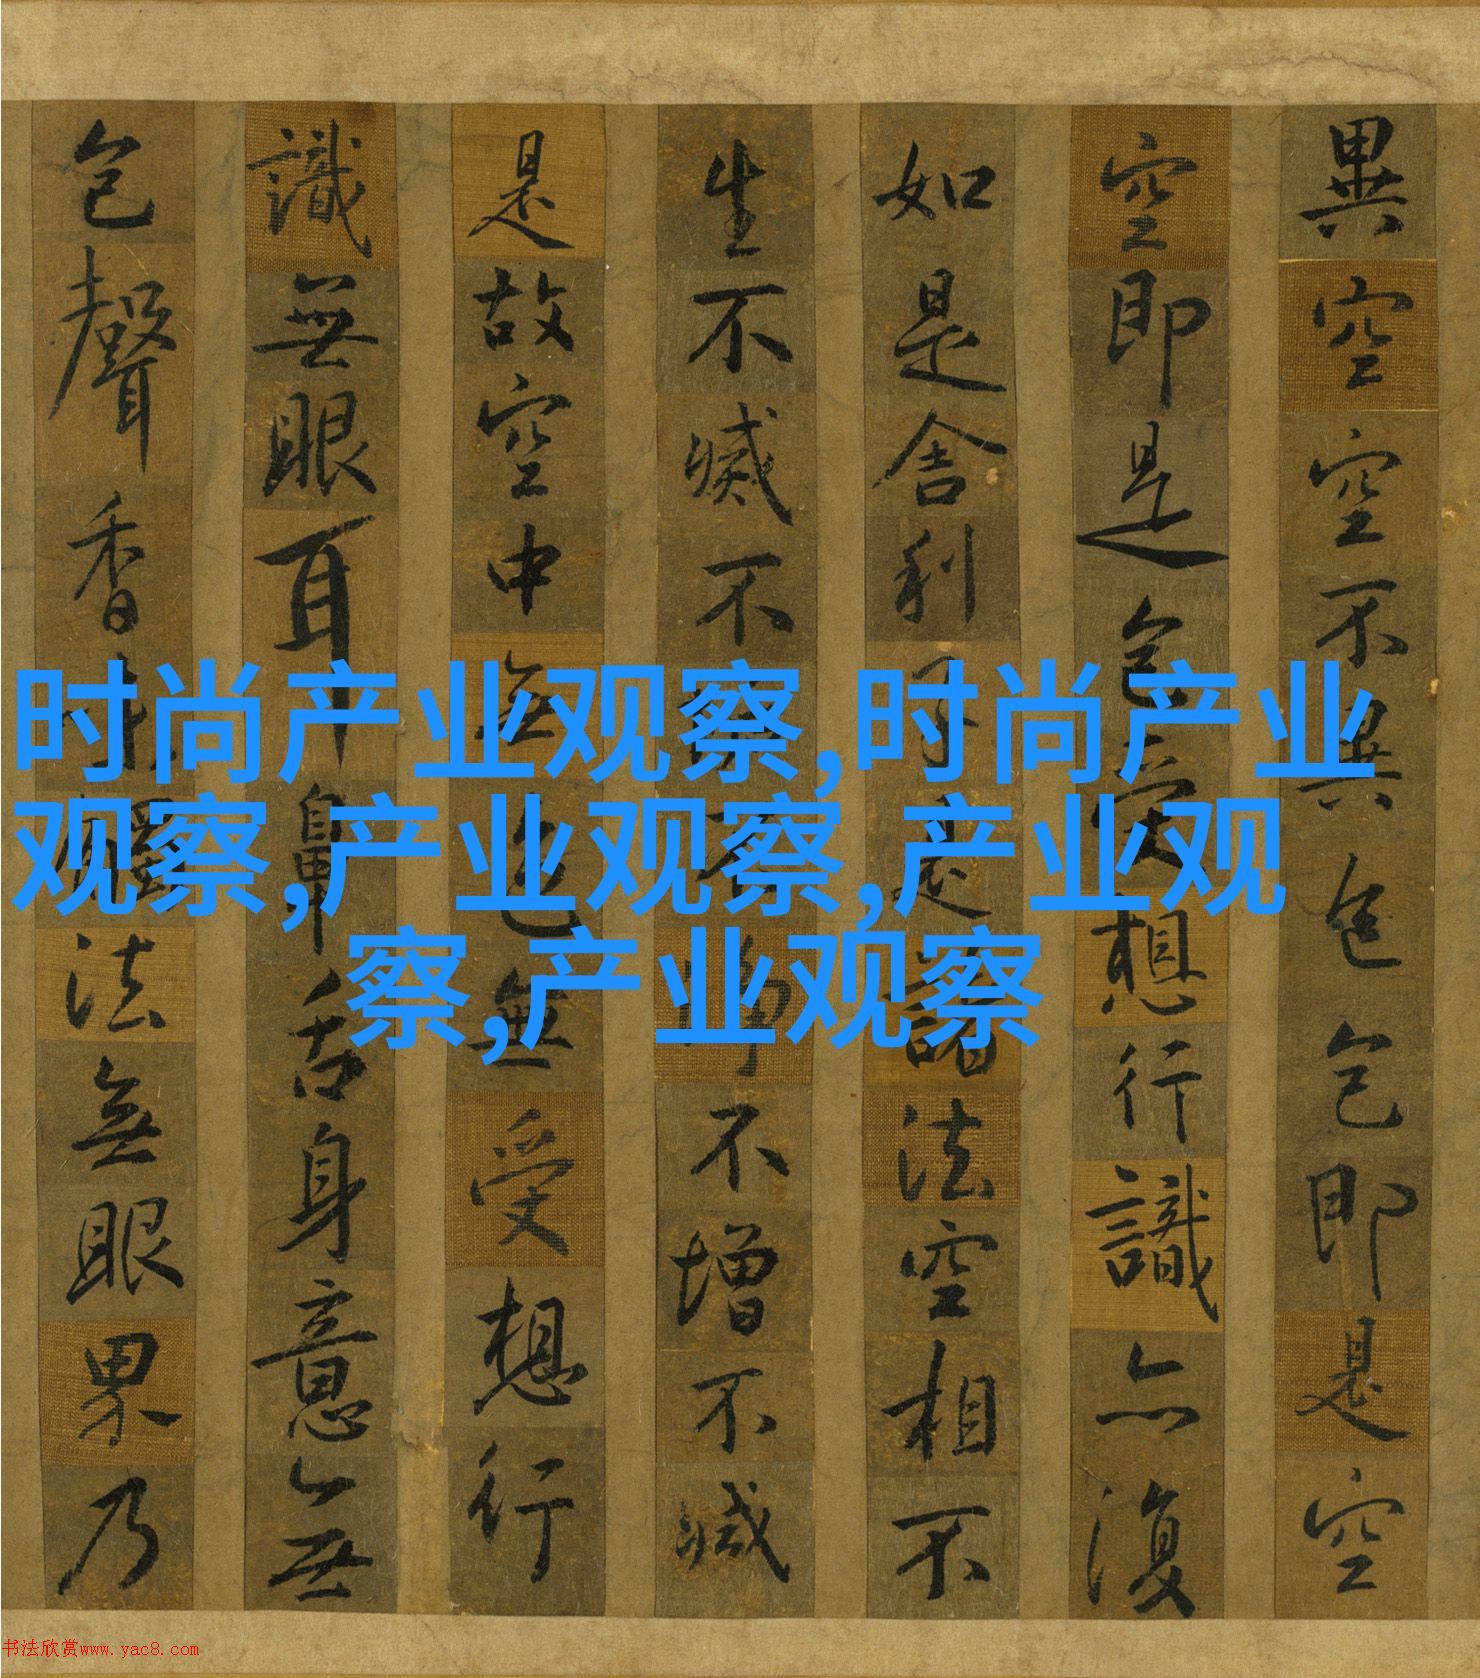 異空空不異色色即是空
空即是色受想行識亦復
如是舍利子是諸法空相不
生不滅不不淨不增不減
是故空中無色無受想行
識無眼耳鼻舌身意無
色聲香味觸法無眼界乃
时尚产业观察,时尚产业
观察,产业观察,产业观
察,产业观察
书法欣赏www.yac8.com